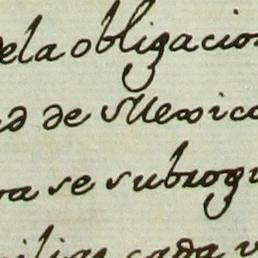 dela obligacion
ad de Mexico
ra se subrog
ilias cada v